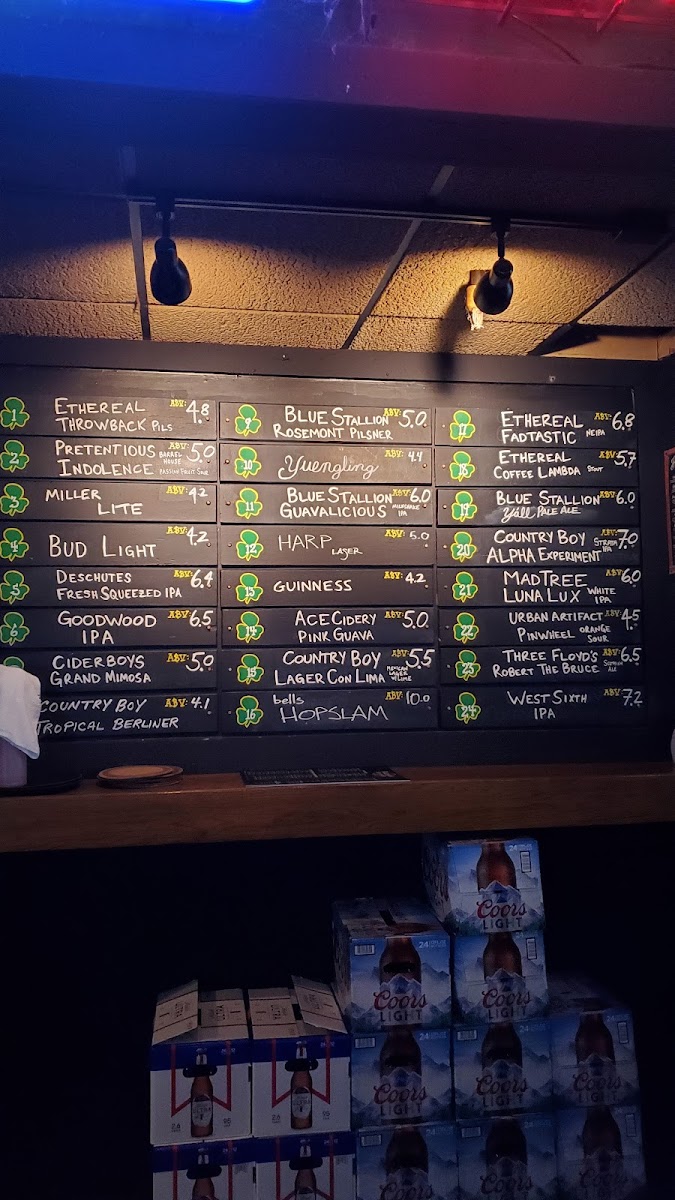 1 ETHEREAL ABV: 4.8
THROWBACK PILS
2 PRETENTIOUS BARREL HOUSE ABV: 5.0
INDOLENCE PASSION FRUIT SOUR
3 MILLER ABV: 4.2
LITE
4 BUD LIGHT ABV: 4.2
5 DESCHUTES ABV: 6.4
FRESH SQUEEZED IPA
6 GOODWOOD ABV: 6.5
IPA
CIDERBOYS ABV: 5.0
GRAND MIMOSA
COUNTRY BOY ABV: 4.1
TROPICAL BERLINER
9 BLUE STALLION ABV: 5.0
ROSEMONT PILSNER
10 Yuengling ABV: 4.4
11 BLUE STALLION ABV: 6.0
GUAVALICIOUS MILKSHAKE IPA
12 HARP LAGER ABV: 5.0
13 GUINNESS ABV: 4.2
14 ACE CIDERY ABV: 5.0
PINK GUAVA
15 COUNTRY BOY ABV: 5.5
LAGER CON LIMA MEXICAN LAGER W/ LIME
16 bells ABV: 10.0
HOPSLAM
17 ETHEREAL ABV: 6.8
FADTASTIC NEIPA
18 ETHEREAL ABV: 5.7
COFFEE LAMBDA STOUT
19 BLUE STALLION ABV: 6.0
Y'all PALE ALE
20 COUNTRY BOY STRATA IPA ABV: 7.0
ALPHA EXPERIMENT
21 MADTREE ABV: 6.0
LUNA LUX WHITE IPA
22 URBAN ARTIFACT ABV: 4.5
PINWHEEL ORANGE SOUR
23 THREE FLOYD'S ABV: 6.5
ROBERT THE BRUCE SCOTTISH ALE
24 WEST SIXTH ABV: 7.2
IPA
24
Coors
LIGHT
24
Coors
LIGHT
Coors
LIGHT
Coors
LIGHT
Coors
LIGHT
Coors
LIGHT
Coors
Coors
ULTRA